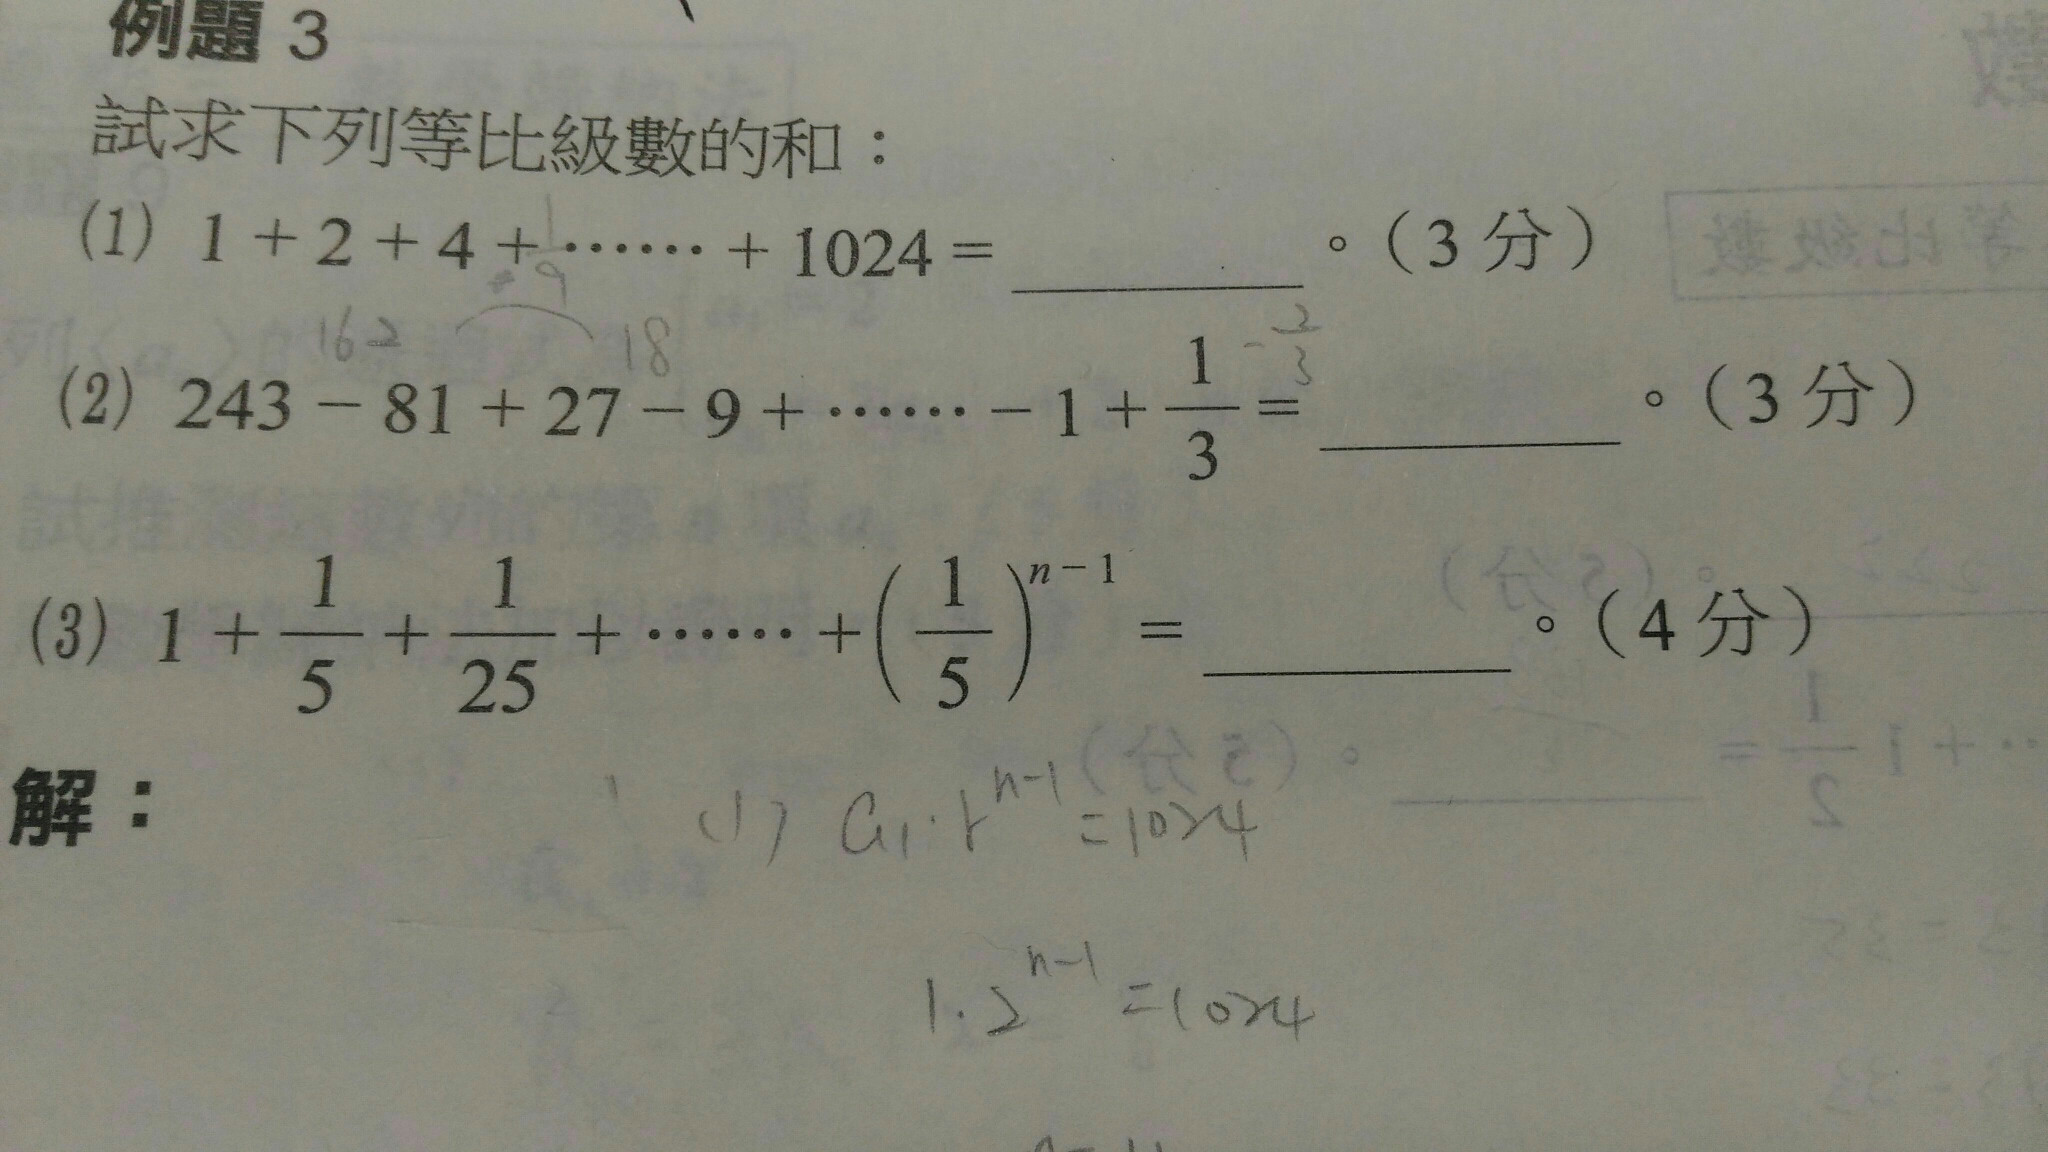 例題 3
試求下列等比級數的和：
(1) 1 + 2 + 4 + …… + 1024 = ________ 。（3 分）
162 18
(2) 243 − 81 + 27 − 9 + …… − 1 + 1/3 = ________ 。（3 分）
-2/3
(3) 1 + 1/5 + 1/25 + …… + (1/5)^(n−1) = ________ 。（4 分）
解：
(1) a₁·r^(n-1) = 1024
1·2^(n-1) = 1024